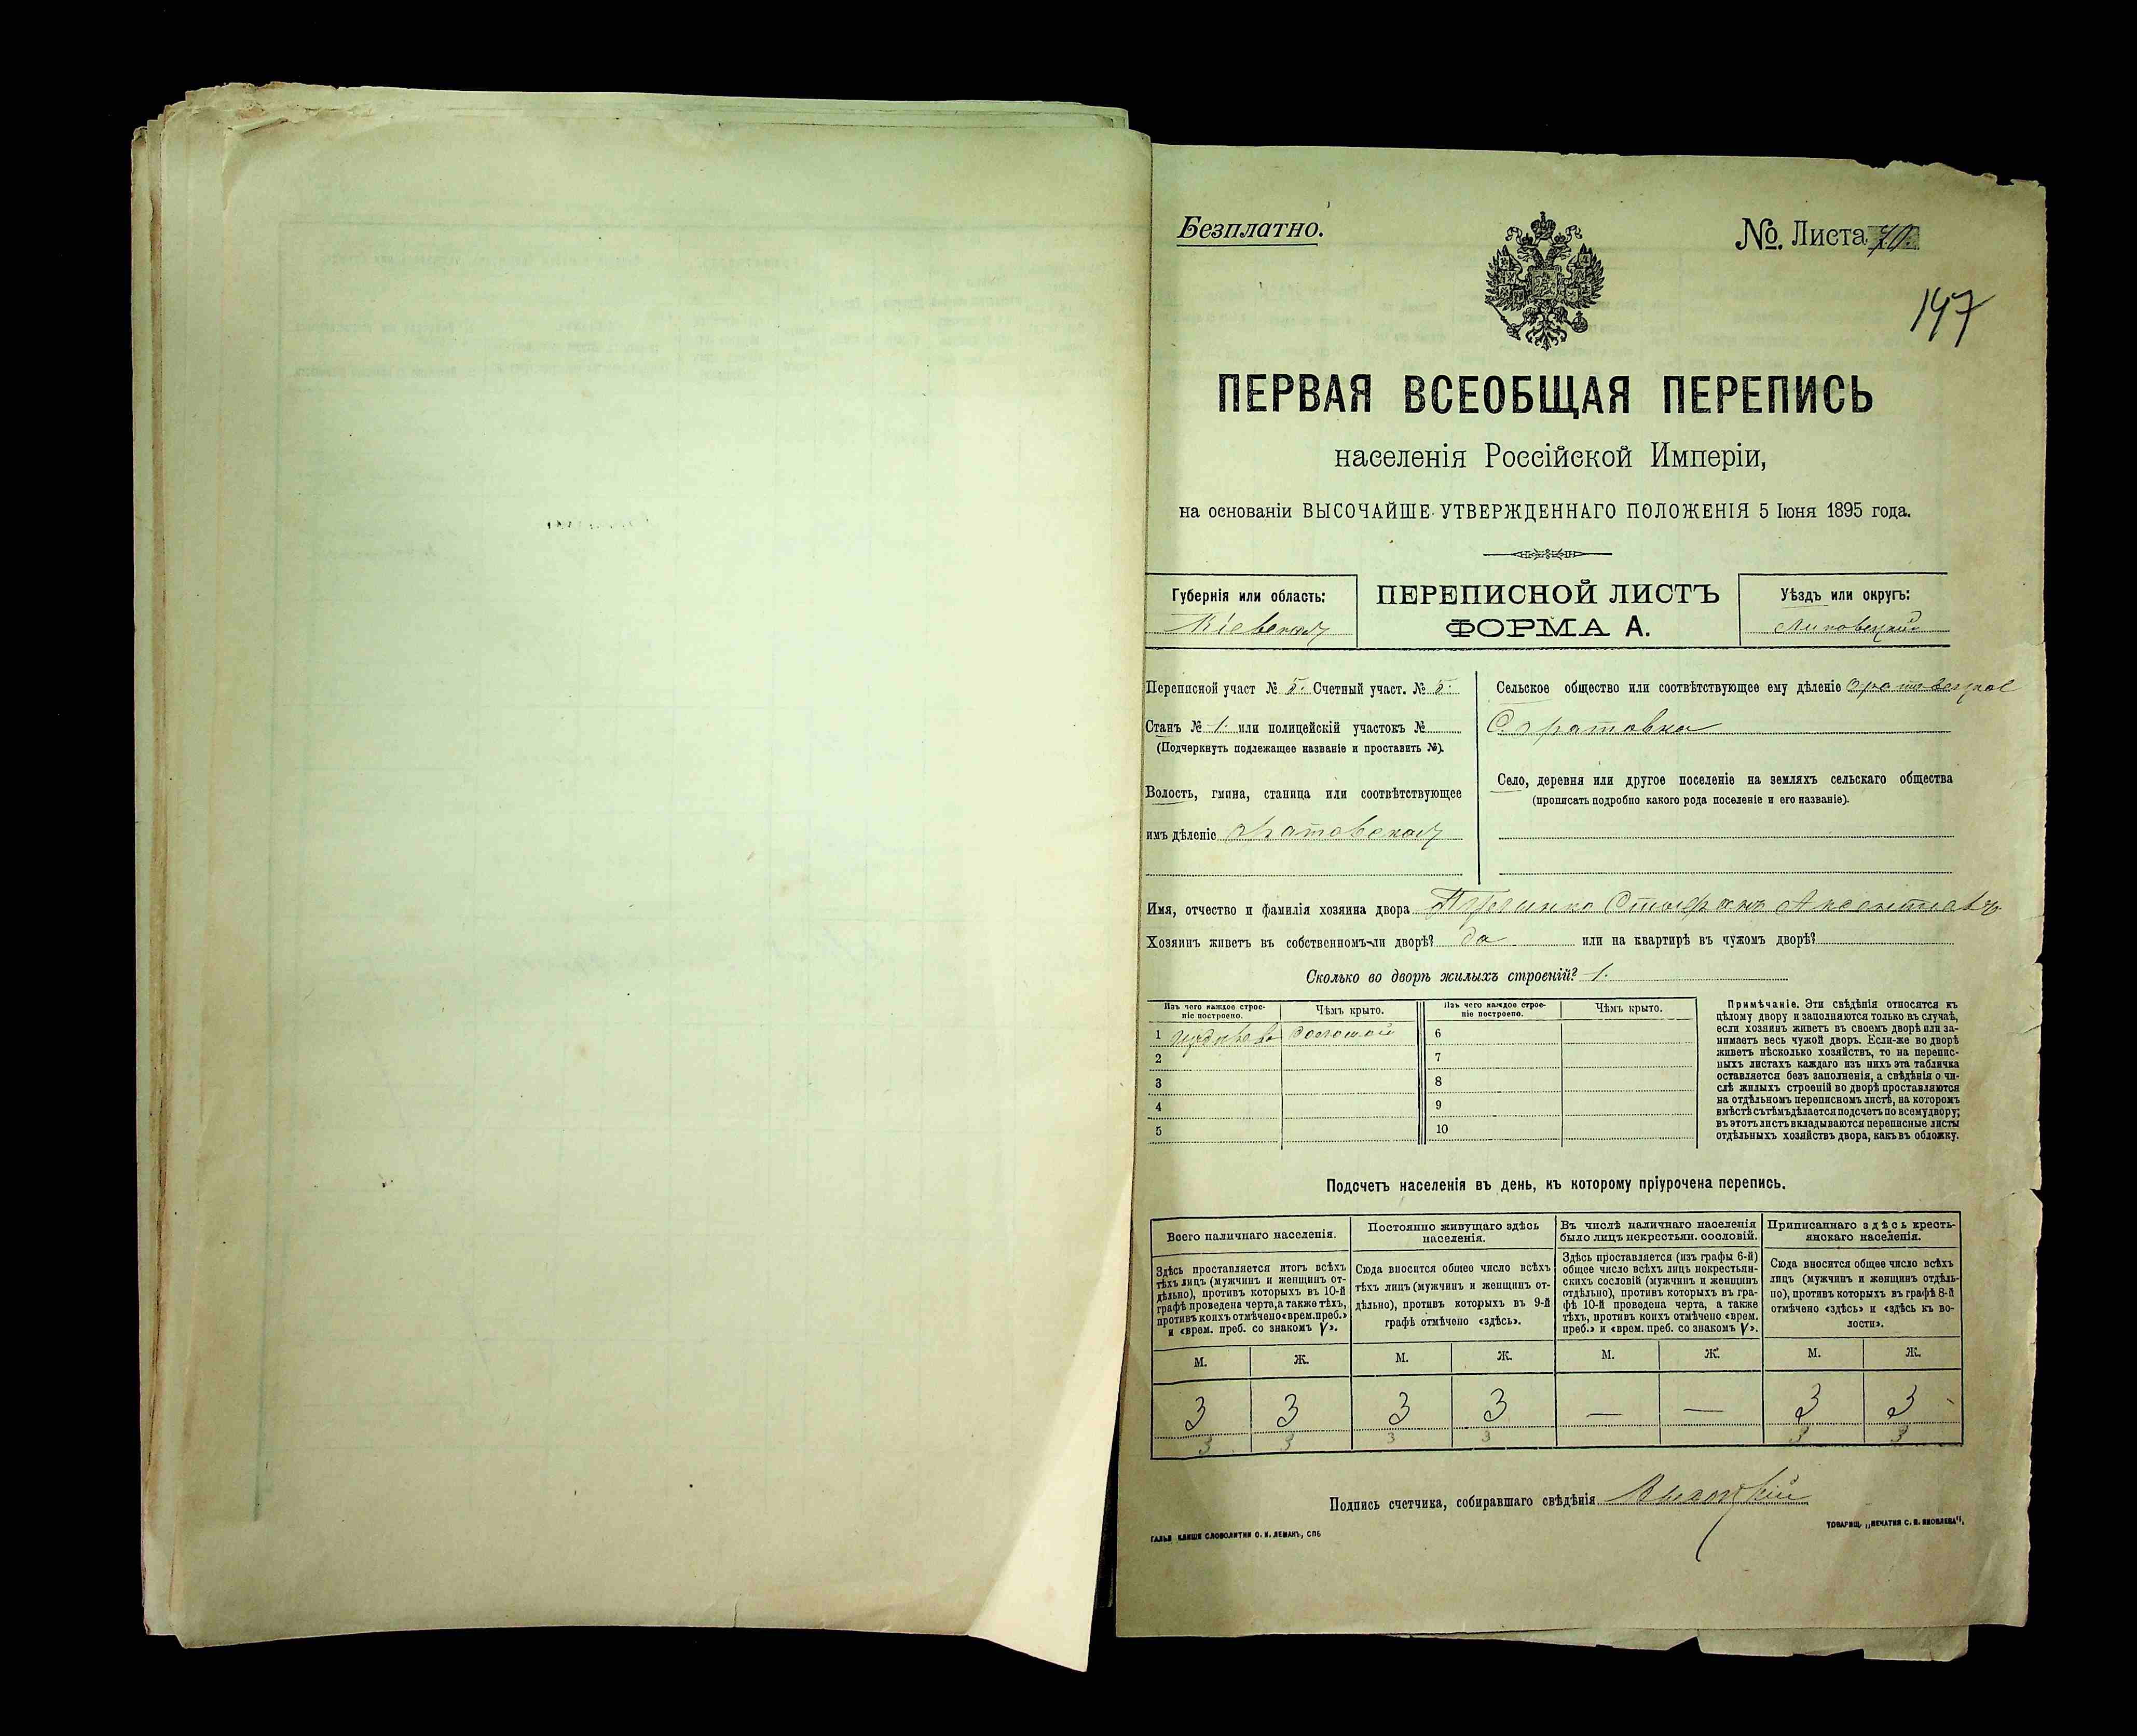 Безплатно.
№ Листа 70.
147
ПЕРВАЯ ВСЕОБЩАЯ ПЕРЕПИСЬ
населенія Россійской Имперіи,
на основаніи ВЫСОЧАЙШЕ УТВЕРЖДЕННАГО ПОЛОЖЕНІЯ 5 Іюня 1895 года.
Губернія или область:
Кіевская
ПЕРЕПИСНОЙ ЛИСТЪ
ФОРМА А.
Уѣздъ или округъ:
Липовецкій
Переписной участ № 5. Счетный участ. № 5.
Станъ № 1. или полицейскій участокъ №
(Подчеркнуть подлежащее названіе и проставить №).
Волость, гмина, станица или соотвѣтствующее
имъ дѣленіе Оратовская
Сельское общество или соотвѣтствующее ему дѣленіе Оратовское
С. Оратовка
Село, деревня или другое поселеніе на земляхъ сельскаго общества
(прописать подробно какого рода поселеніе и его названіе).
Имя, отчество и фамилія хозяина двора
Хозяинъ живетъ въ собственномъ-ли дворѣ? да или на квартирѣ въ чужомъ дворѣ?
Сколько во дворѣ жилыхъ строеній? 1.
Изъ чего каждое строе-
ніе построено.
Чѣмъ крыто.
Изъ чего каждое строе-
ніе построено.
Чѣмъ крыто.
1 изъ дерева соломой
2
3
4
5
6
7
8
9
10
Примѣчаніе. Эти свѣдѣнія относятся къ
цѣлому двору и заполняются только въ случаѣ,
если хозяинъ живетъ въ своемъ дворѣ или за-
нимаетъ весь чужой дворъ. Если-же во дворѣ
живетъ нѣсколько хозяйствъ, то на перепис-
ныхъ листахъ каждаго изъ нихъ эта табличка
оставляется безъ заполненія, а свѣдѣнія о чи-
слѣ жилыхъ строеній во дворѣ проставляются
на отдѣльномъ переписномъ листѣ, на которомъ
вмѣстѣ съ тѣмъ дѣлается подсчетъ по всему двору;
въ этотъ листъ вкладываются переписные листы
отдѣльныхъ хозяйствъ двора, какъ въ обложку.
Подсчетъ населенія въ день, къ которому пріурочена перепись.
Всего наличнаго населенія.
Здѣсь проставляется итогъ всѣхъ
тѣхъ лицъ (мужчинъ и женщинъ от-
дѣльно), противъ которыхъ въ 10-й
графѣ проведена черта, а также тѣхъ,
противъ коихъ отмѣчено «врем. преб.»
и «врем. преб. со знакомъ V».
Постоянно живущаго здѣсь
населенія.
Сюда вносится общее число всѣхъ
тѣхъ лицъ (мужчинъ и женщинъ от-
дѣльно), противъ которыхъ въ 9-й
графѣ отмѣчено «здѣсь».
Въ числѣ наличнаго населенія
было лицъ некрестьян. сословій.
Здѣсь проставляется (изъ графы 6-й)
общее число всѣхъ лицъ некрестьян-
скихъ сословій (мужчинъ и женщинъ
отдѣльно), противъ которыхъ въ гра-
фѣ 10-й проведена черта, а также
тѣхъ, противъ коихъ отмѣчено «врем.
преб.» и «врем. преб. со знакомъ V».
Приписаннаго здѣсь кресть-
янскаго населенія.
Сюда вносится общее число всѣхъ
лицъ (мужчинъ и женщинъ отдѣль-
но), противъ которыхъ въ графѣ 8-й
отмѣчено «здѣсь» и «здѣсь къ во-
лости».
М. Ж. М. Ж. М. Ж. М. Ж.
3 3 3 3 — — 3 3
3 3 3 3 3 3
Подпись счетчика, собиравшаго свѣдѣнія
ГАЛЬВ. КЛИШЕ СЛОВОЛИТНИ О. И. ЛЕМАНЪ, СПБ
ТОВАРИЩ. „ПЕЧАТНЯ С. П. ЯКОВЛЕВА".